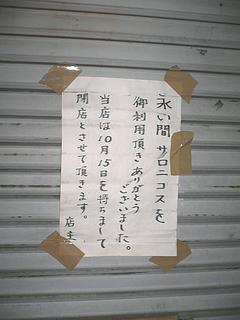 永い間 サロニコスを
御利用頂きありがとう
ございました。
当店は10月15日を持ちまして
閉店とさせて頂きます。
店主